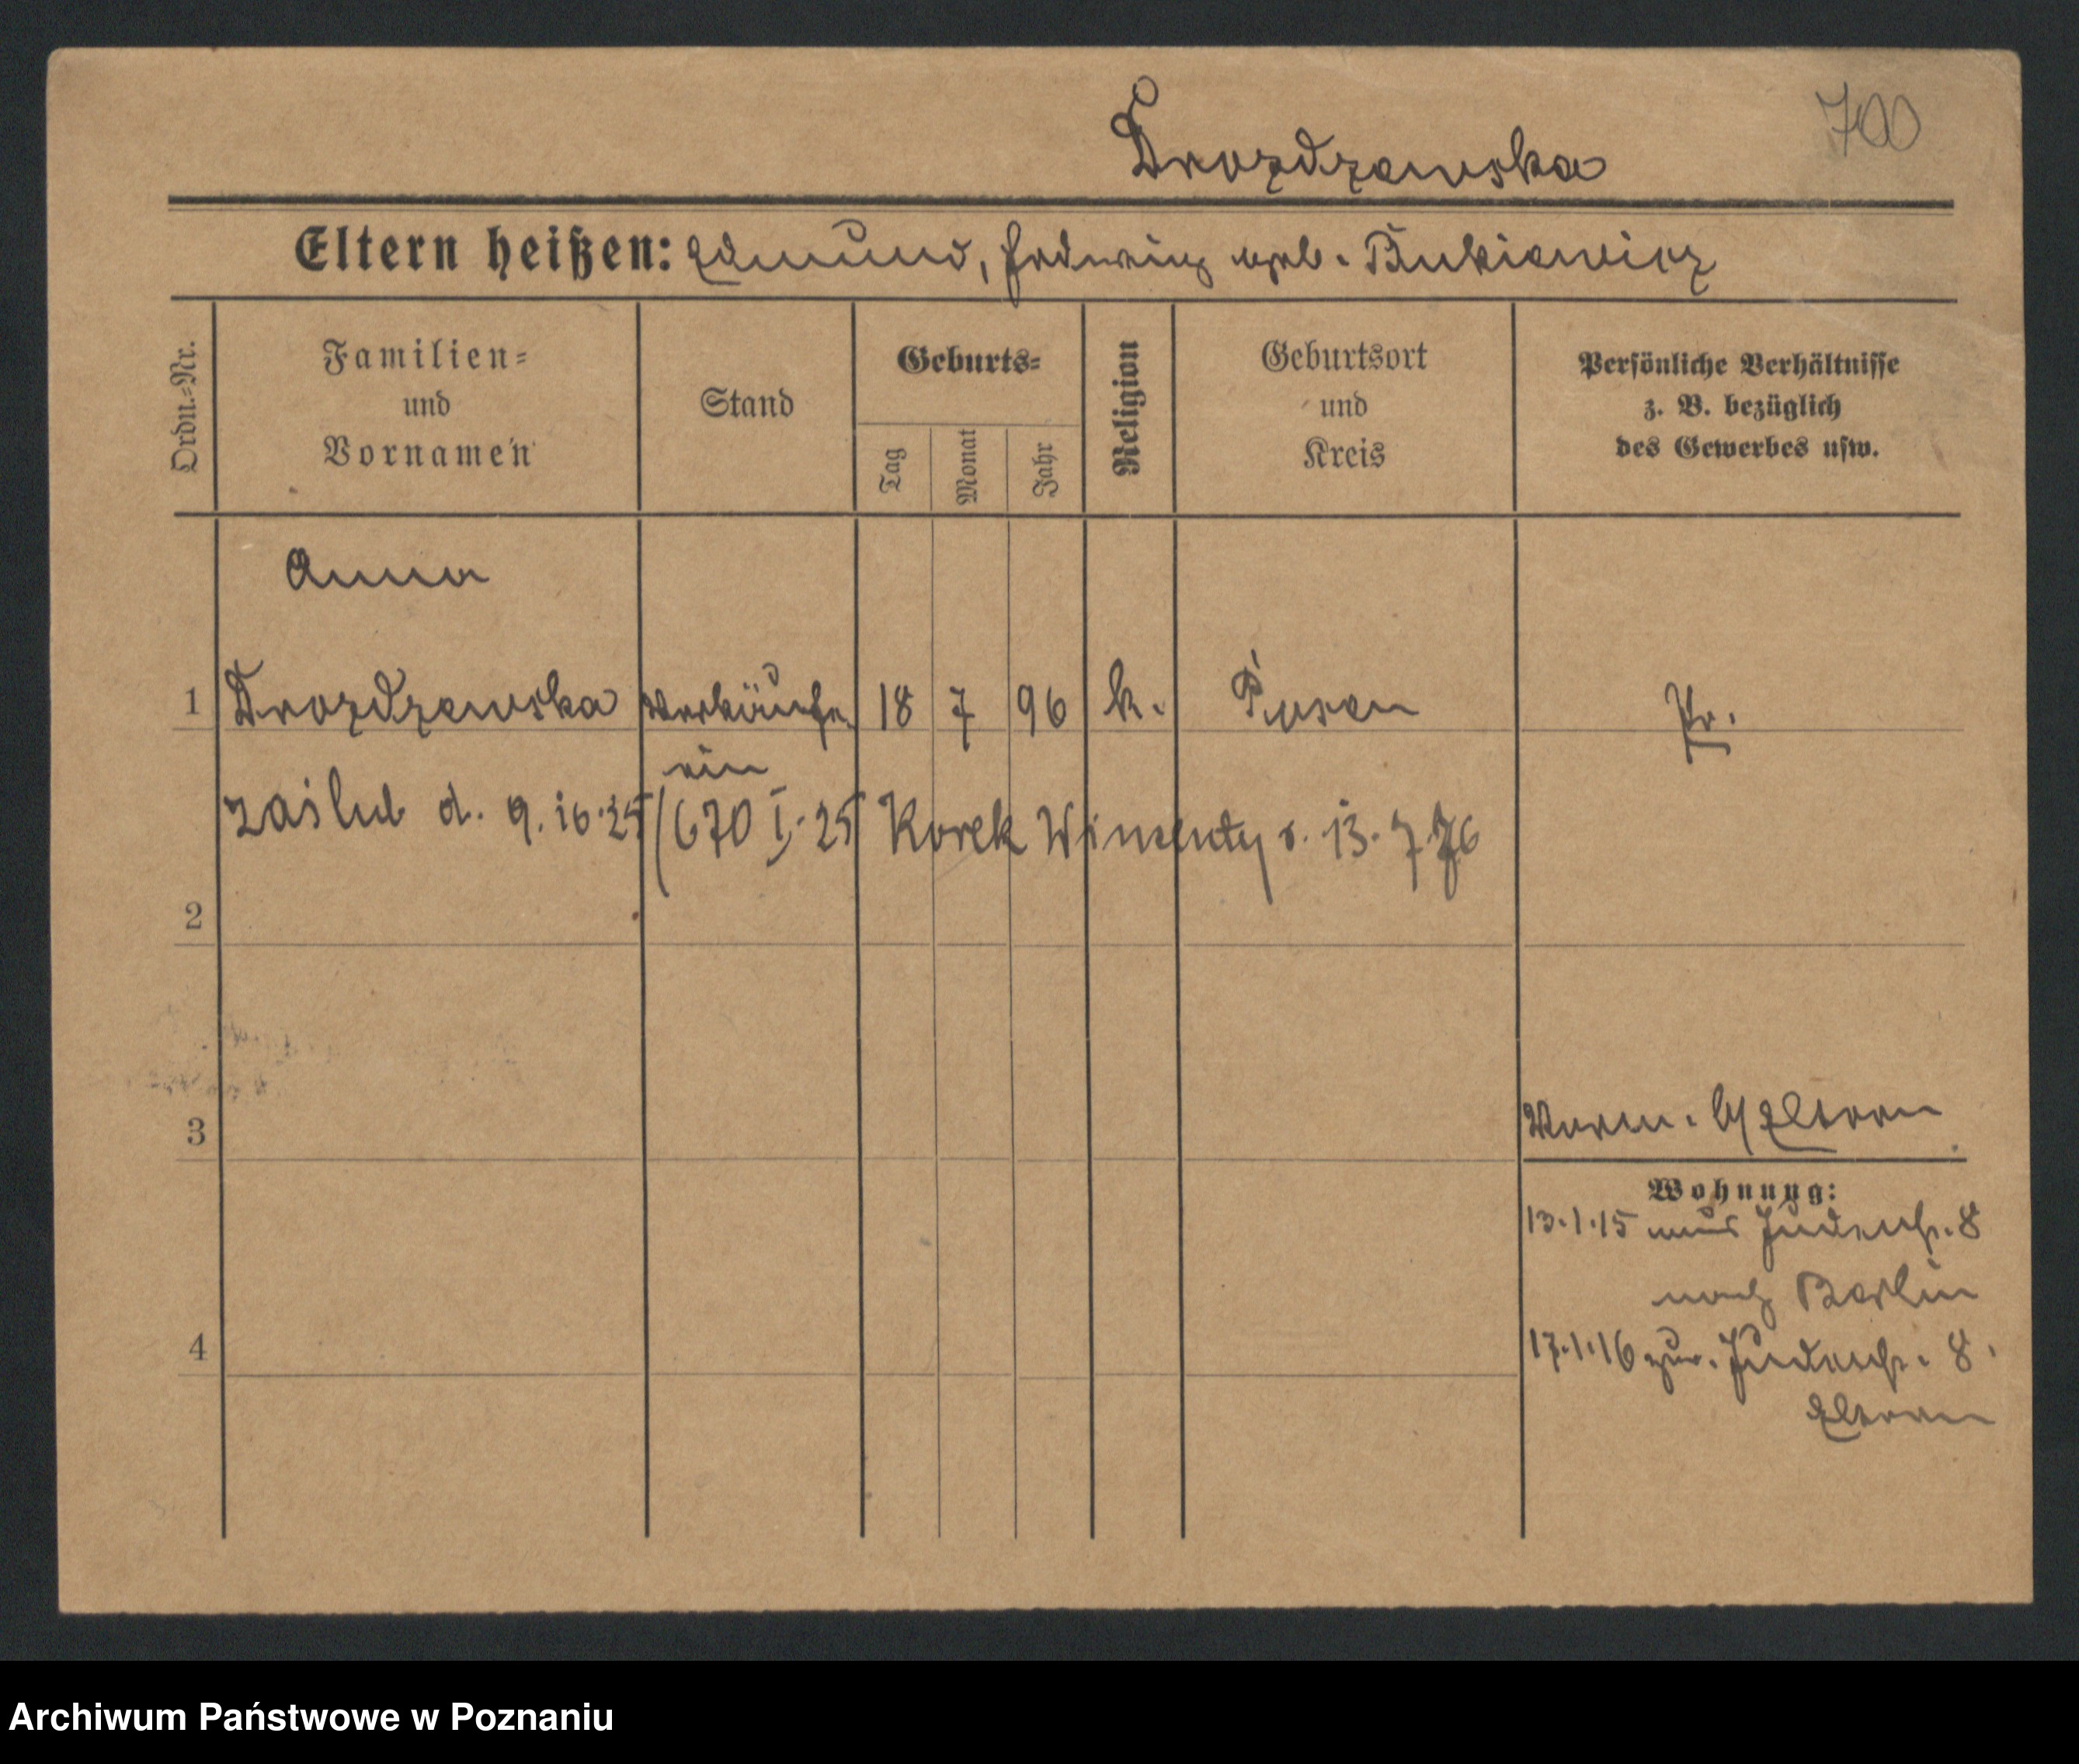 Drozdzewska
700
Eltern heißen: Edmund, Hedwig geb. Bukiewicz
Ordn.=Nr.
Familien=
und
Vornamen
Stand
Geburts=
Tag
Monat
Jahr
Religion
Geburtsort
und
Kreis
Persönliche Verhältnisse
z. B. bezüglich
des Gewerbes usw.
Anna
1 Drozdzewska Verkäufer 18 7 96 k. Posen Pr.
ein
zaślub d. 9.10.25 (670 I. 25 Korek Wincenty 13.7.76
2
3
Eltern
Wohnung:
13.1.15 aus Judenstr. 8
nach Berlin
4
17.1.16 zur. Judenstr. 8.
Eltern
Archiwum Państwowe w Poznaniu